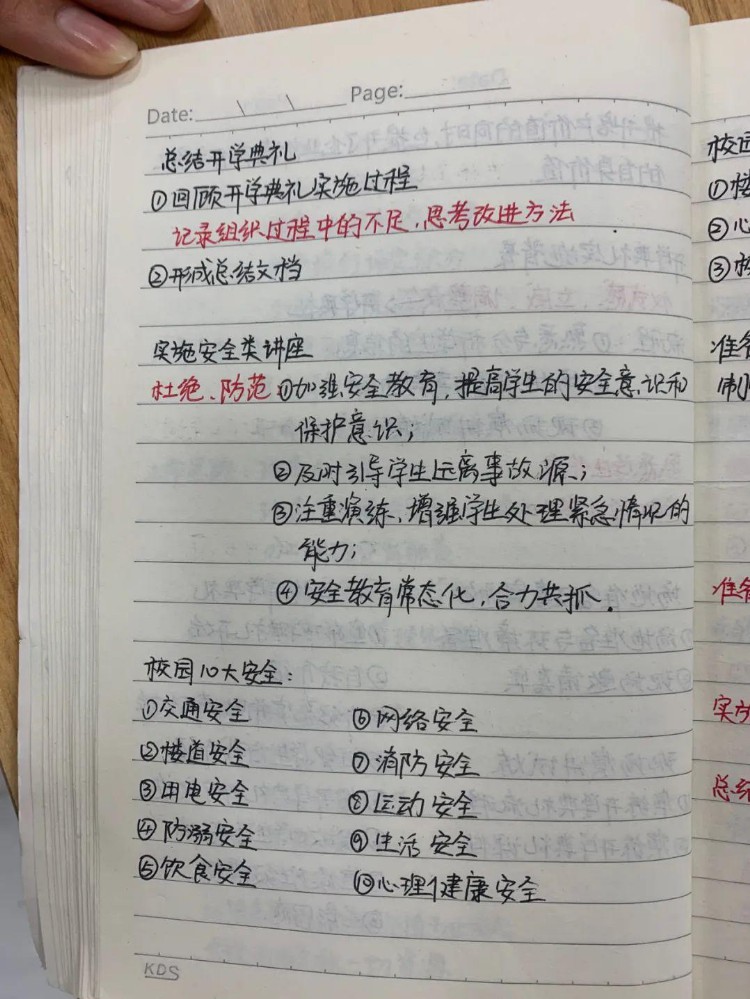 Date: \ \ Page:
总结开学典礼
①回顾开学典礼实施过程
记录组织过程中的不足,思考改进方法
②形成总结文档
实施安全类讲座
杜绝、防范 ①加强安全教育,提高学生的安全意识和
保护意识;
②及时引导学生远离事故源;
③注重演练、增强学生处理紧急情况的
能力;
④安全教育常态化,合力共抓.
校园10大安全:
①交通安全 ⑥网络安全
②楼道安全 ⑦消防安全
③用电安全 ⑧运动安全
④防溺安全 ⑨生活安全
⑤饮食安全 ⑩心理健康安全
KDS
校园
①楼
②心
准备
制
准备
实施
总结